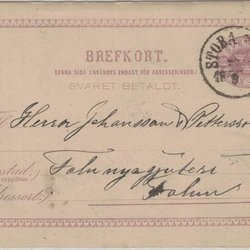 BREFKORT.
DENNA SIDA ANVÄNDES ENDAST FÖR ADRESSERINGEN.
SVARET BETALDT.
STORA
Till Herrar Johansson & Pettersson
Falu nya gjuteri
Falun